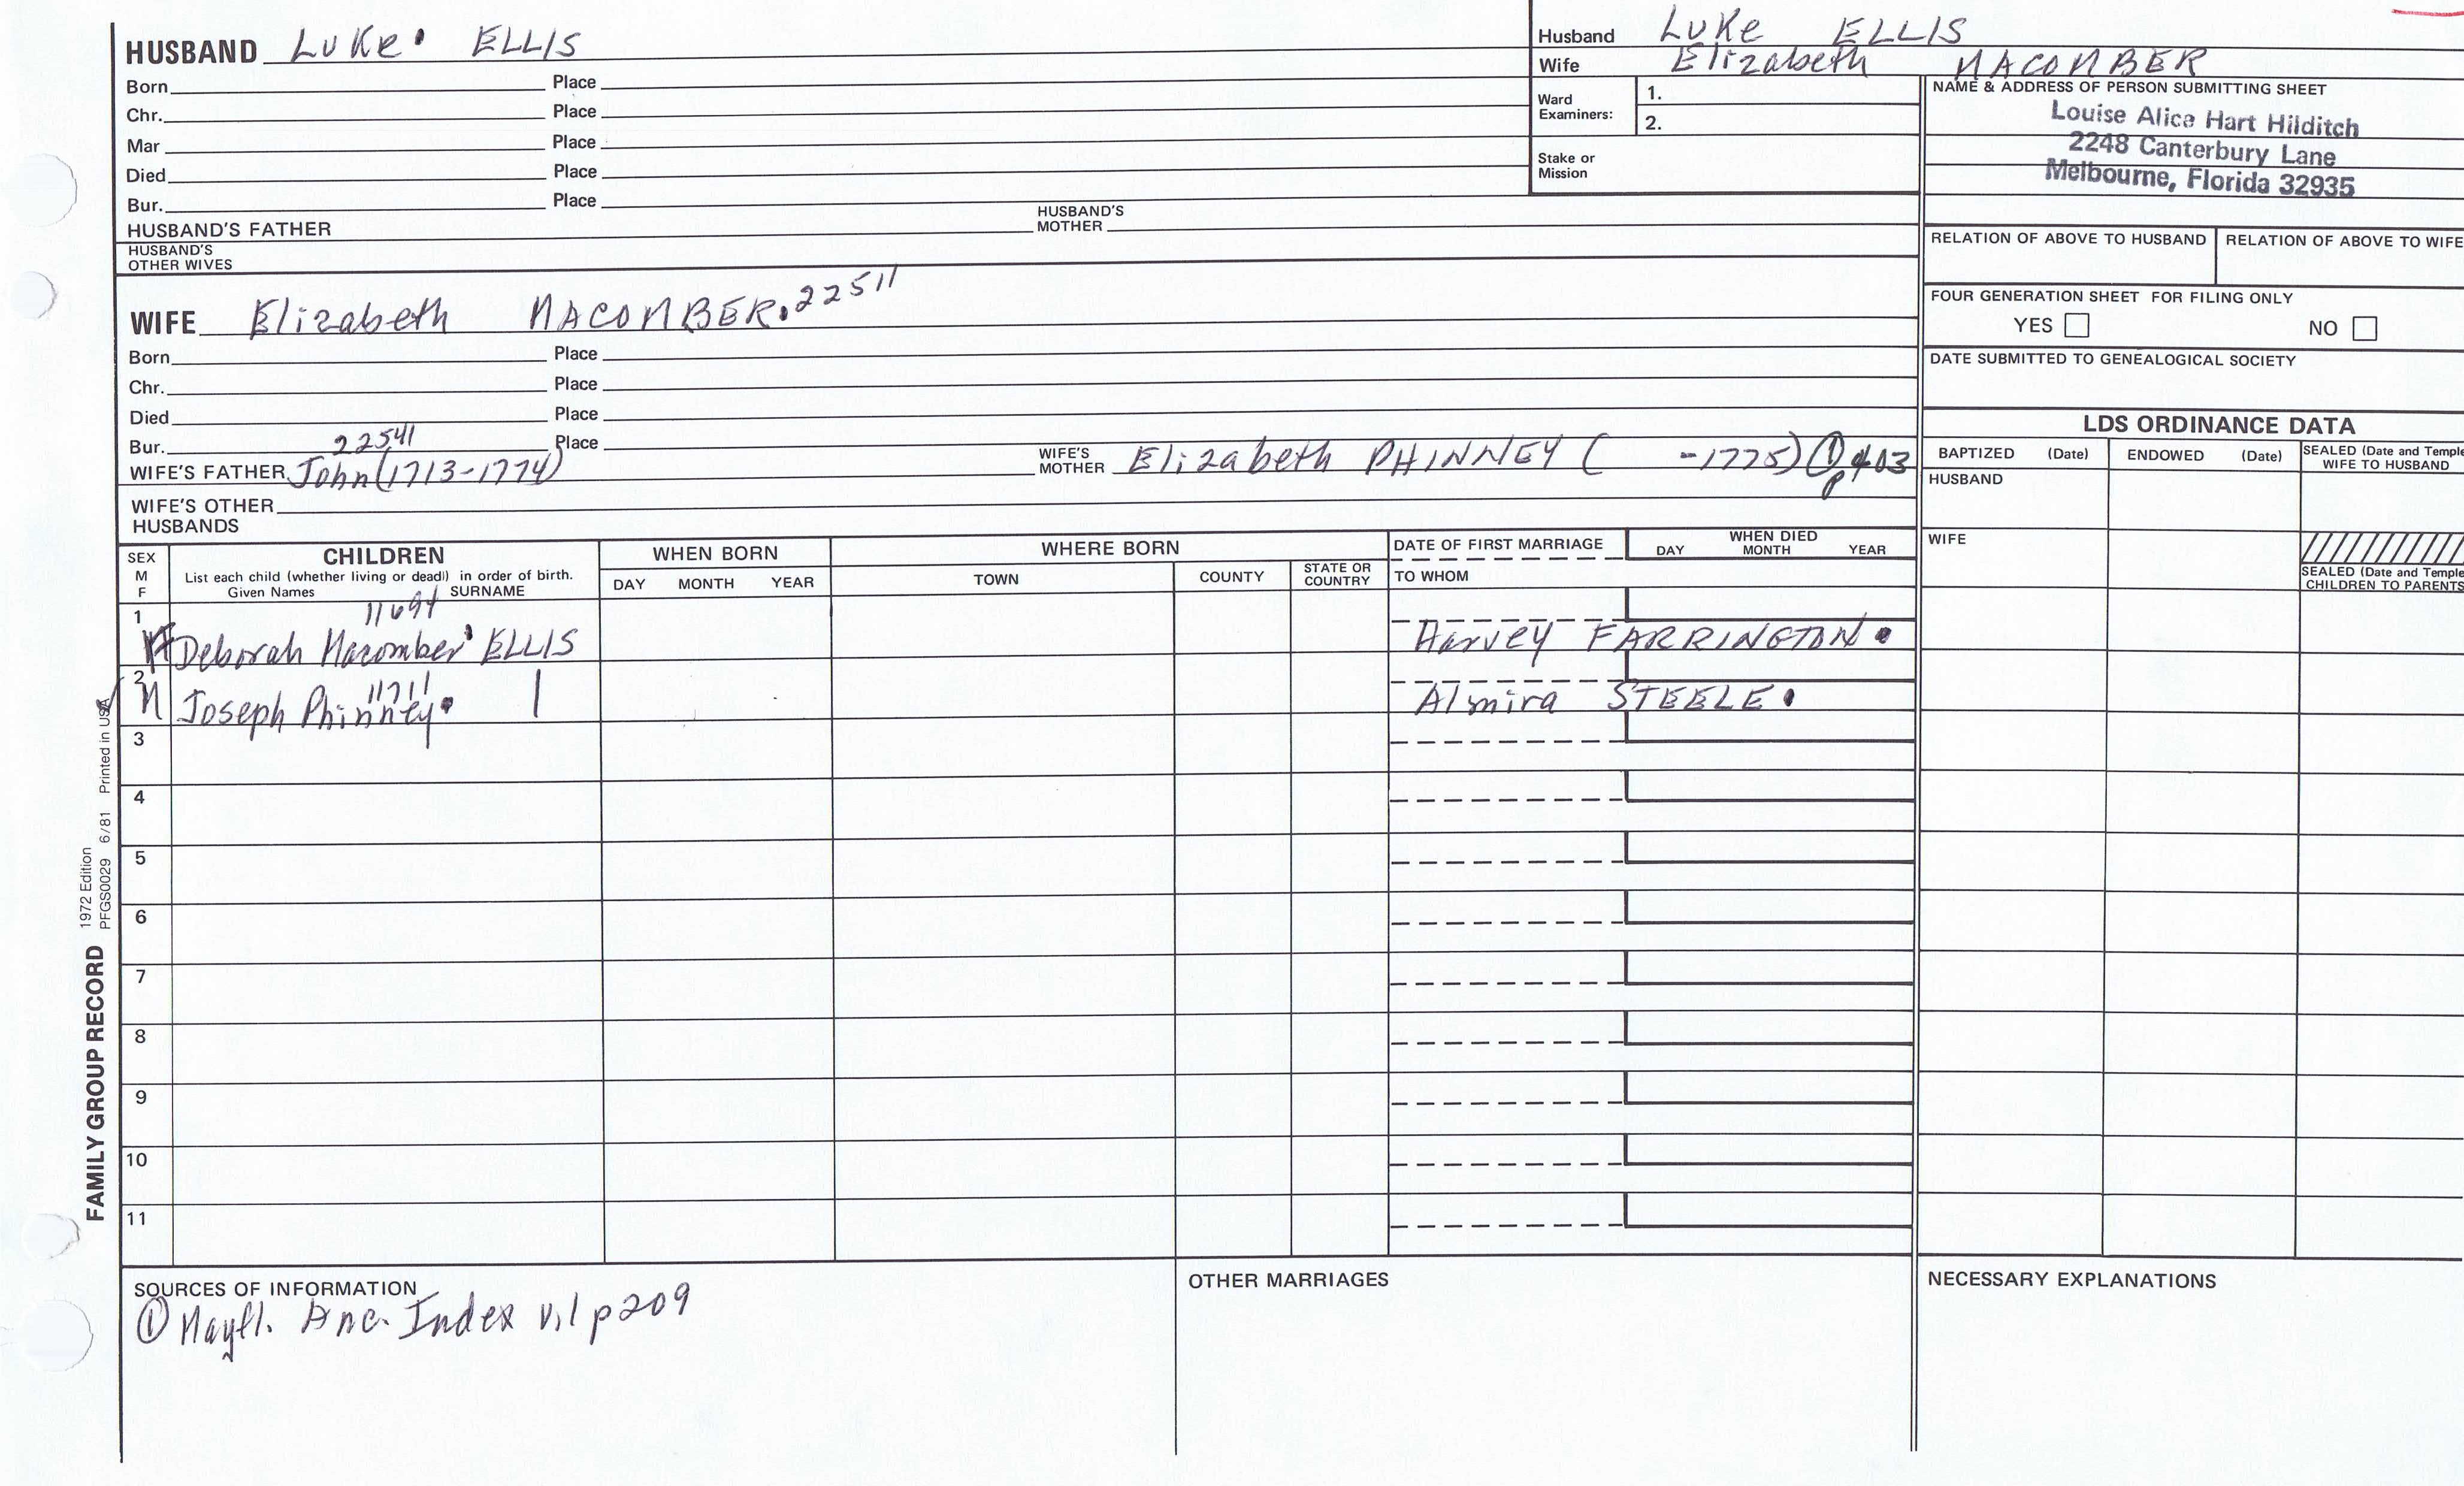 HUSBAND Luke ELLIS
Born Place
Chr. Place
Mar Place
Died Place
Bur. Place
HUSBAND'S FATHER HUSBAND'S MOTHER
HUSBAND'S OTHER WIVES
Husband Luke ELLIS
Wife Elizabeth MACOMBER
Ward Examiners: 1.
2.
Stake or Mission
NAME & ADDRESS OF PERSON SUBMITTING SHEET
Louise Alice Hart Hilditch
2248 Canterbury Lane
Melbourne, Florida 32935
RELATION OF ABOVE TO HUSBAND RELATION OF ABOVE TO WIFE
FOUR GENERATION SHEET FOR FILING ONLY
YES NO
DATE SUBMITTED TO GENEALOGICAL SOCIETY
WIFE Elizabeth MACOMBER. 22511
Born Place
Chr. Place
Died Place
Bur. Place
22541
WIFE'S FATHER John (1713-1774) WIFE'S MOTHER Elizabeth PHINNEY ( -1775) ① p403
WIFE'S OTHER HUSBANDS
LDS ORDINANCE DATA
BAPTIZED (Date) ENDOWED (Date) SEALED (Date and Temple WIFE TO HUSBAND
HUSBAND
WIFE
SEALED (Date and Temple CHILDREN TO PARENTS
SEX M F CHILDREN WHEN BORN WHERE BORN DATE OF FIRST MARRIAGE WHEN DIED
List each child (whether living or dead) in order of birth.
Given Names SURNAME DAY MONTH YEAR TOWN COUNTY STATE OR COUNTRY TO WHOM DAY MONTH YEAR
11694
1 F Deborah Macomber ELLIS Harvey FARRINGTON.
11711
2 M Joseph Phinney. | Almira STEELE.
3
4
5
6
7
8
9
10
11
SOURCES OF INFORMATION
① Mayfl. Anc. Index v.1 p209
OTHER MARRIAGES
NECESSARY EXPLANATIONS
FAMILY GROUP RECORD
1972 Edition
PFGS0029 6/81 Printed in USA